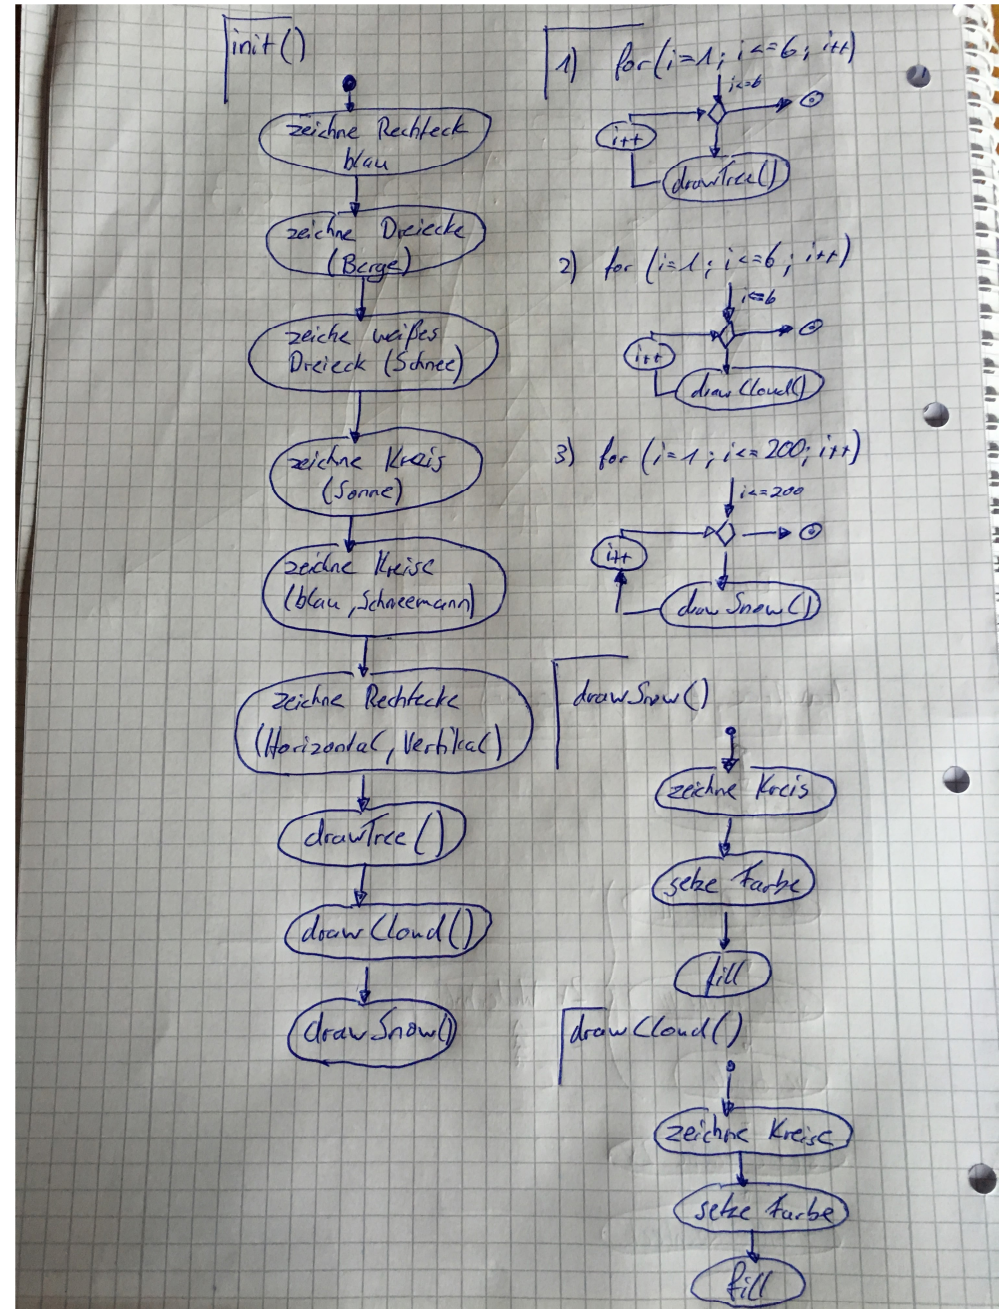 init()
zeichne Rechteck
blau
zeichne Dreiecke
(Berge)
zeiche weißes
Dreieck (Schnee)
zeichne Kreis
(Sonne)
zeichne Kreise
(blau, Schneemann)
zeichne Rechtecke
(Horizontal, Vertikal)
drawTree()
drawCloud()
drawSnow()
1) for(i=1; i<=6; i++)
i<=6
i++
drawTree()
2) for (i=1; i<=6; i++)
i<=6
i++
drawCloud()
3) for (i=1; i<=200; i++)
i<=200
i++
drawSnow()
drawSnow()
zeichne Kreis
setze Farbe
fill
drawCloud()
zeichne Kreise
setze Farbe
fill